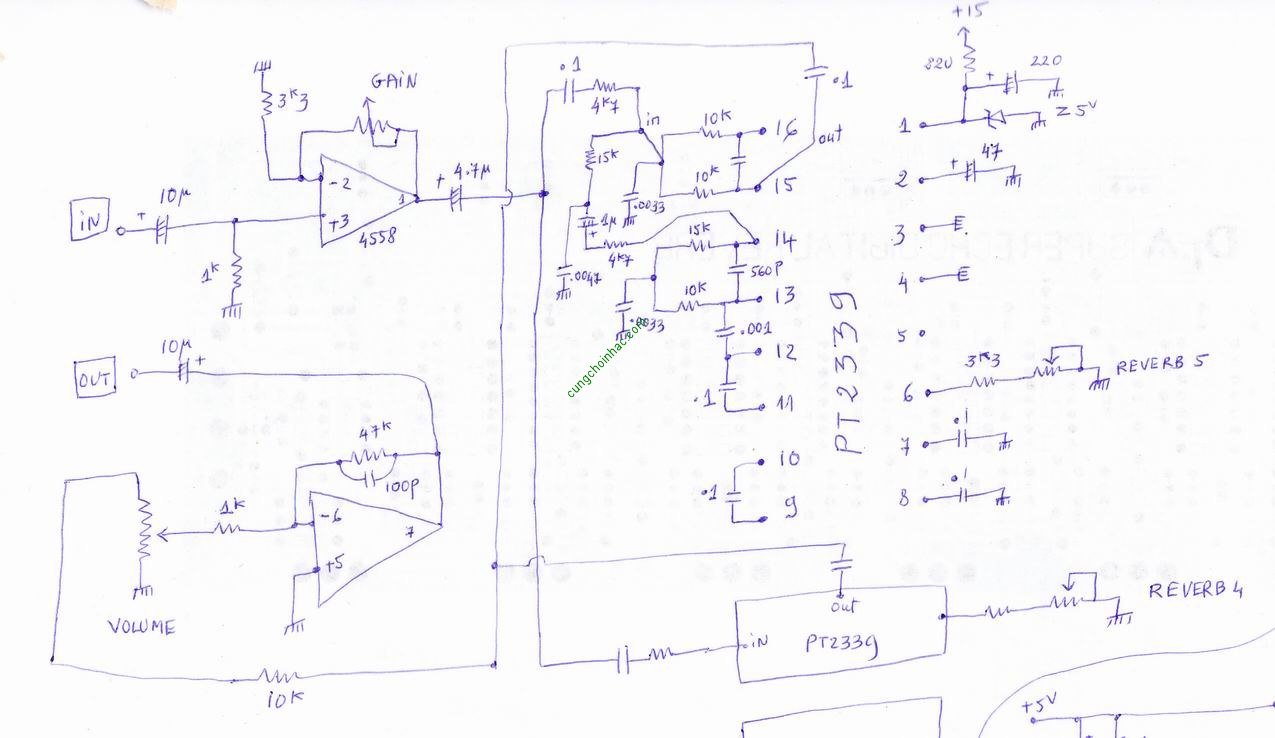 +15
.1
220
820
GAiN
4K7
.1
3K3
Z 5V
in
10K
16
1
out
15K
47
2
10K
15
10µ
4.7µ
-2
1
iN
.0033
+3
1µ
4558
15K
14
3
4K7
1K
.0047
560P
4
10K
13
.0033
.001
5
10µ
OUT
12
3K3
REVERB 5
6
.1
11
PT2339
47K
.1
7
10
100p
.1
.1
8
9
1K
-6
7
+5
out
REVERB 4
VOLUME
iN
PT2339
10K
+5V
cungchoinhac.com